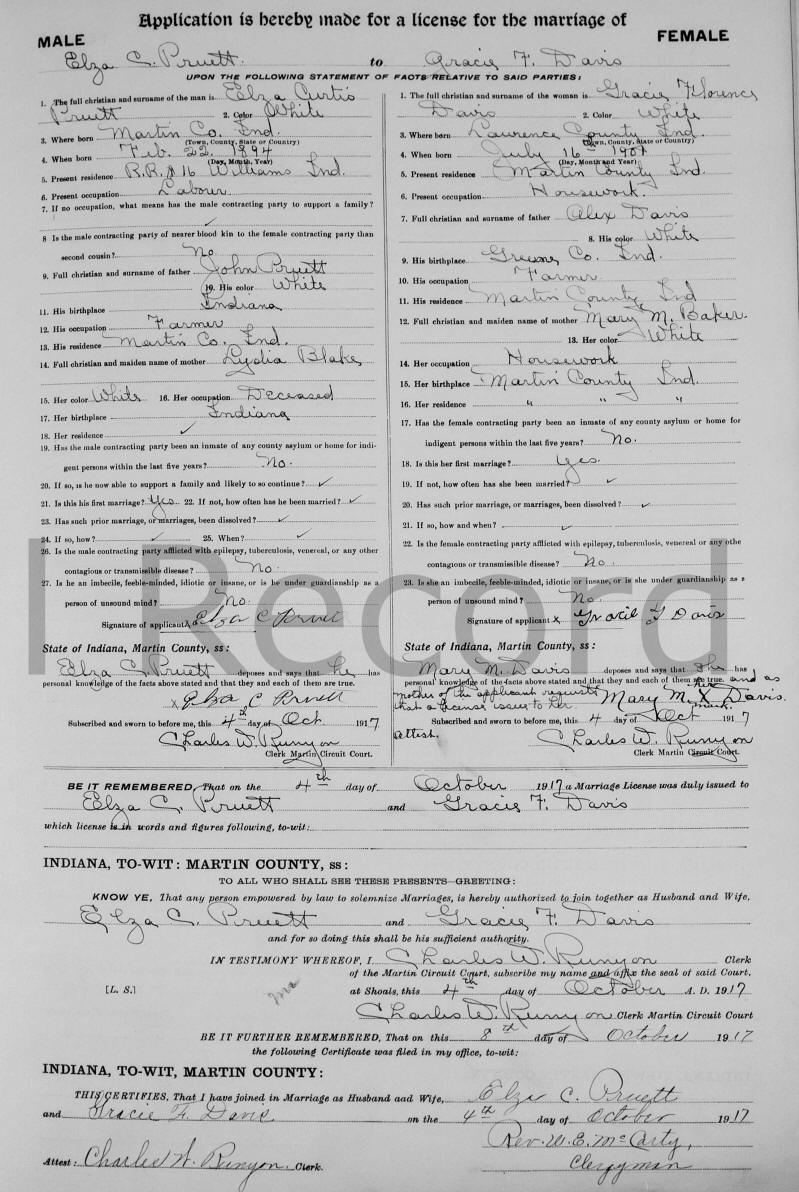 Application is hereby made for a license for the marriage of
MALE
FEMALE
Elza C. Pruett to Gracie F. Davis
UPON THE FOLLOWING STATEMENT OF FACTS RELATIVE TO SAID PARTIES:
1. The full christian and surname of the man is Elza Curtis
Pruett 2. Color White
3. Where born Martin Co. Ind.
(Town, County, State or Country)
4. When born Feb. 22, 1894
(Day, Month, Year)
5. Present residence R.R. # 16 Williams Ind.
6. Present occupation Laborer
7. If no occupation, what means has the male contracting party to support a family?
✓
8 Is the male contracting party of nearer blood kin to the female contracting party than
second cousin? No
9. Full christian and surname of father John Pruett
10. His color White
11. His birthplace Indiana
12. His occupation Farmer
13. His residence Martin Co. Ind.
14. Full christian and maiden name of mother Lydia Blake
15. Her color White 16. Her occupation Deceased
17. Her birthplace Indiana
18. Her residence ✓
19. Has the male contracting party been an inmate of any county asylum or home for indi-
gent persons within the last five years? No.
20. If so, is he now able to support a family and likely to so continue? ✓
21. Is this his first marriage? Yes 22. If not, how often has he been married? ✓
23. Has such prior marriage, or marriages, been dissolved? ✓
24. If so, how? ✓ 25. When? ✓
26. Is the male contracting party afflicted with epilepsy, tuberculosis, venereal, or any other
contagious or transmissible disease? No.
27. Is he an imbecile, feeble-minded, idiotic or insane, or is he under guardianship as a
person of unsound mind? No.
Signature of applicant x Elza C Pruett
State of Indiana, Martin County, ss:
Elza C. Pruett deposes and says that he has
personal knowledge of the facts above stated and that they and each of them are true.
x Elza C Pruett
Subscribed and sworn to before me, this 4th day of Oct. 1917
Charles W. Runyon
Clerk Martin Circuit Court.
1. The full christian and surname of the woman is Gracie Florence
Davis 2. Color White
3. Where born Lawrence County Ind.
(Town, County, State or Country)
4. When born July 16 1901
(Day, Month and Year)
5. Present residence Martin County Ind.
6. Present occupation Housework.
7. Full christian and surname of father Alex Davis
8. His color White
9. His birthplace Greene Co. Ind.
10. His occupation Farmer
11. His residence Martin County Ind
12. Full christian and maiden name of mother Mary M. Baker
13. Her color White
14. Her occupation Housework
15. Her birthplace Martin County Ind.
16. Her residence " " "
17. Has the female contracting party been an inmate of any county asylum or home for
indigent persons within the last five years? No.
18. Is this her first marriage? Yes.
19. If not, how often has she been married? ✓
20. Has such marriage, or marriages, been dissolved? ✓
21. If so, how and when? ✓
22. Is the female contracting party afflicted with epilepsy, tuberculosis, venereal or any othe
contagious or transmissible disease? No.
23. Is she an imbecile, feeble-minded, idiotic or insane, or is she under guardianship as a
person of unsound mind? No
Signature of applicant x Gracie F Davis
State of Indiana, Martin County, ss:
Mary M. Davis deposes and says that She has
personal knowledge of the facts above stated and that they and each of them are true. and as
mother of the applicant requests
that a license issues to her
her
Mary M. X Davis.
mark.
Subscribed and sworn to before me, this 4 day of Oct 1917
Attest. Charles W. Runyon
Clerk Martin Circuit Court.
BE IT REMEMBERED, That on the 4th day of October 1917 a Marriage License was duly issued to
Elza C. Pruett and Gracie F. Davis
which license is in words and figures following, to-wit:
INDIANA, TO-WIT: MARTIN COUNTY, ss:
TO ALL WHO SHALL SEE THESE PRESENTS—GREETING:
KNOW YE, That any person empowered by law to solemnize Marriages, is hereby authorized to join together as Husband and Wife,
Elza C. Pruett and Gracie F. Davis
and for so doing this shall be his sufficient authority.
IN TESTIMONY WHEREOF, I Charles W. Runyon Clerk
of the Martin Circuit Court, subscribe my name and affix the seal of said Court,
[L. S.] at Shoals, this 4th day of October A. D. 1917
Charles W. Runyon Clerk Martin Circuit Court
BE IT FURTHER REMEMBERED, That on this 8th day of October 1917
the following Certificate was filed in my office, to-wit:
INDIANA, TO-WIT, MARTIN COUNTY:
THIS CERTIFIES, That I have joined in Marriage as Husband aad Wife, Elza C. Pruett
and Gracie F. Davis on the 4th day of October 1917
Rev. W. E. McCarty,
Attest: Charles W. Runyon. Clerk. Clergyman
Record